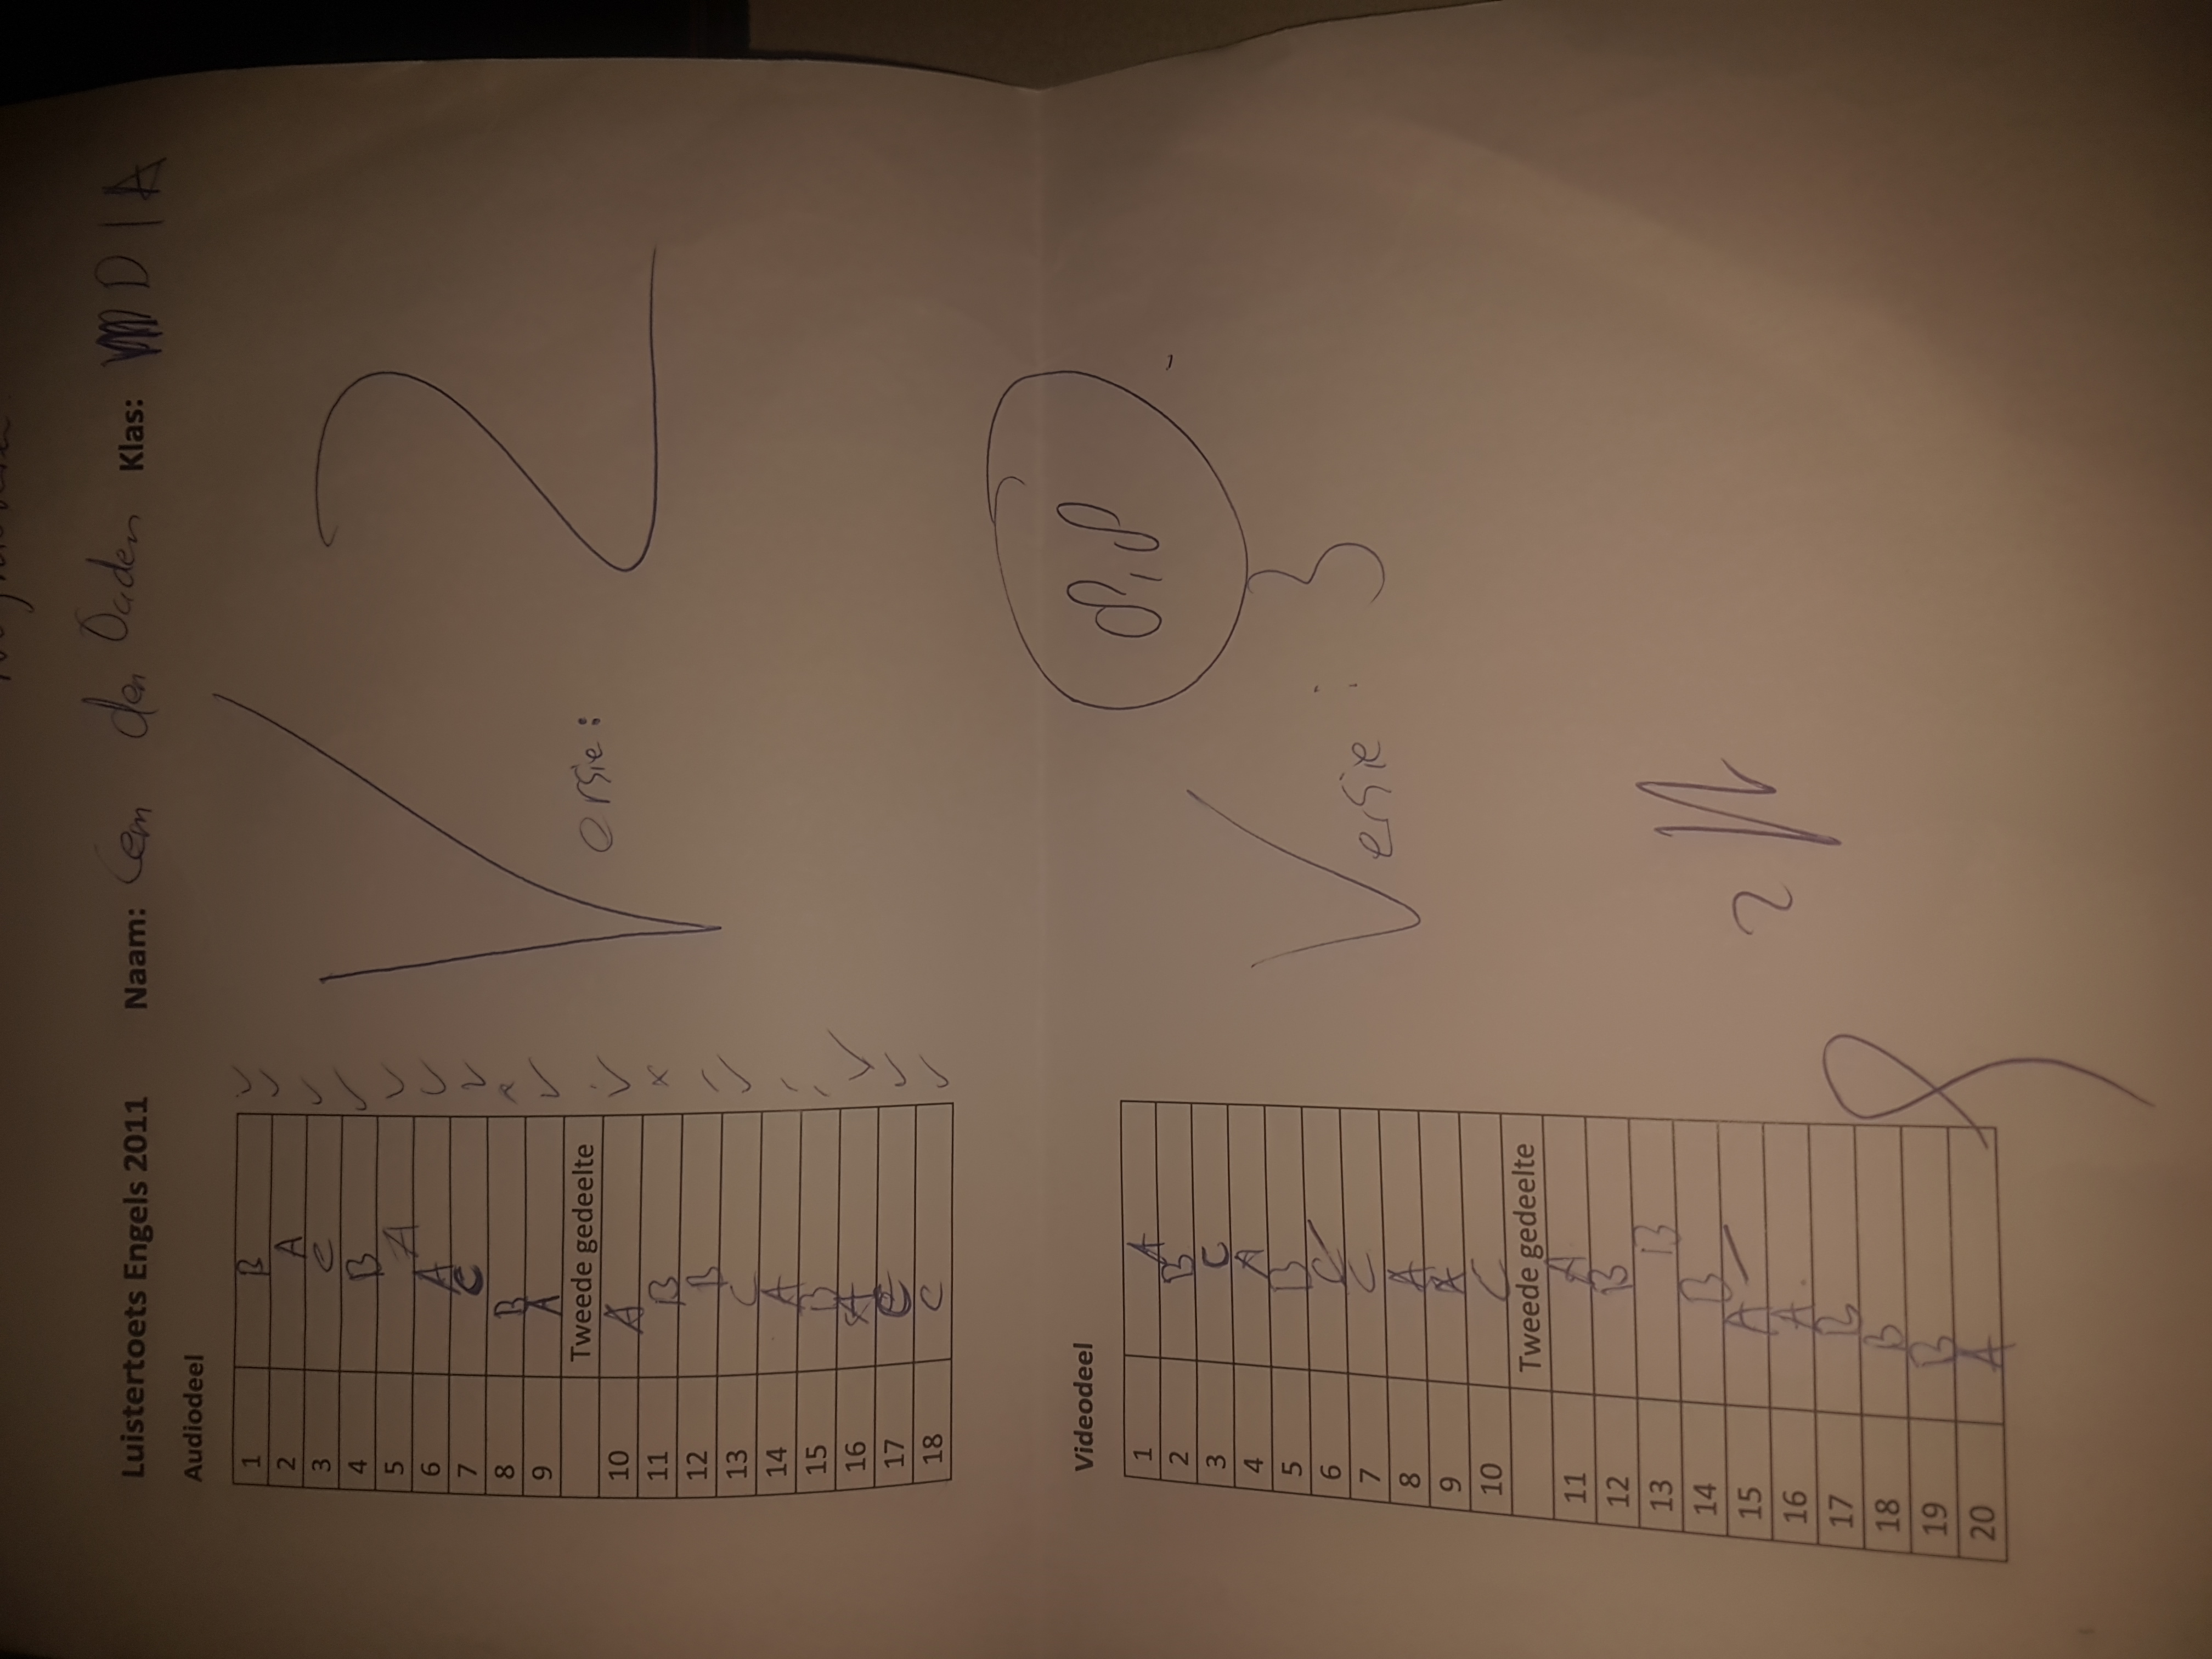 Luistertoets Engels 2011 Naam: Cem den Ouden Klas: MD1A
Audiodeel
1 B
2 A
3 C
4 B
5 A
6 A
7 C
8 B
9 A
Tweede gedeelte
10 A
11 B
12 B
13 C
14 A
15 B
16 A
17 C
18 C
Versie: 2
Videodeel
8,8
1 A
2 B
3 C
4 A
5 B
6 C
7 C
8 A
9 A
10 C
Versie: 3
Tweede gedeelte
11 A
12 B
13 B
14 B
15 A
16 A
17 B
18 B
19 B
20 A